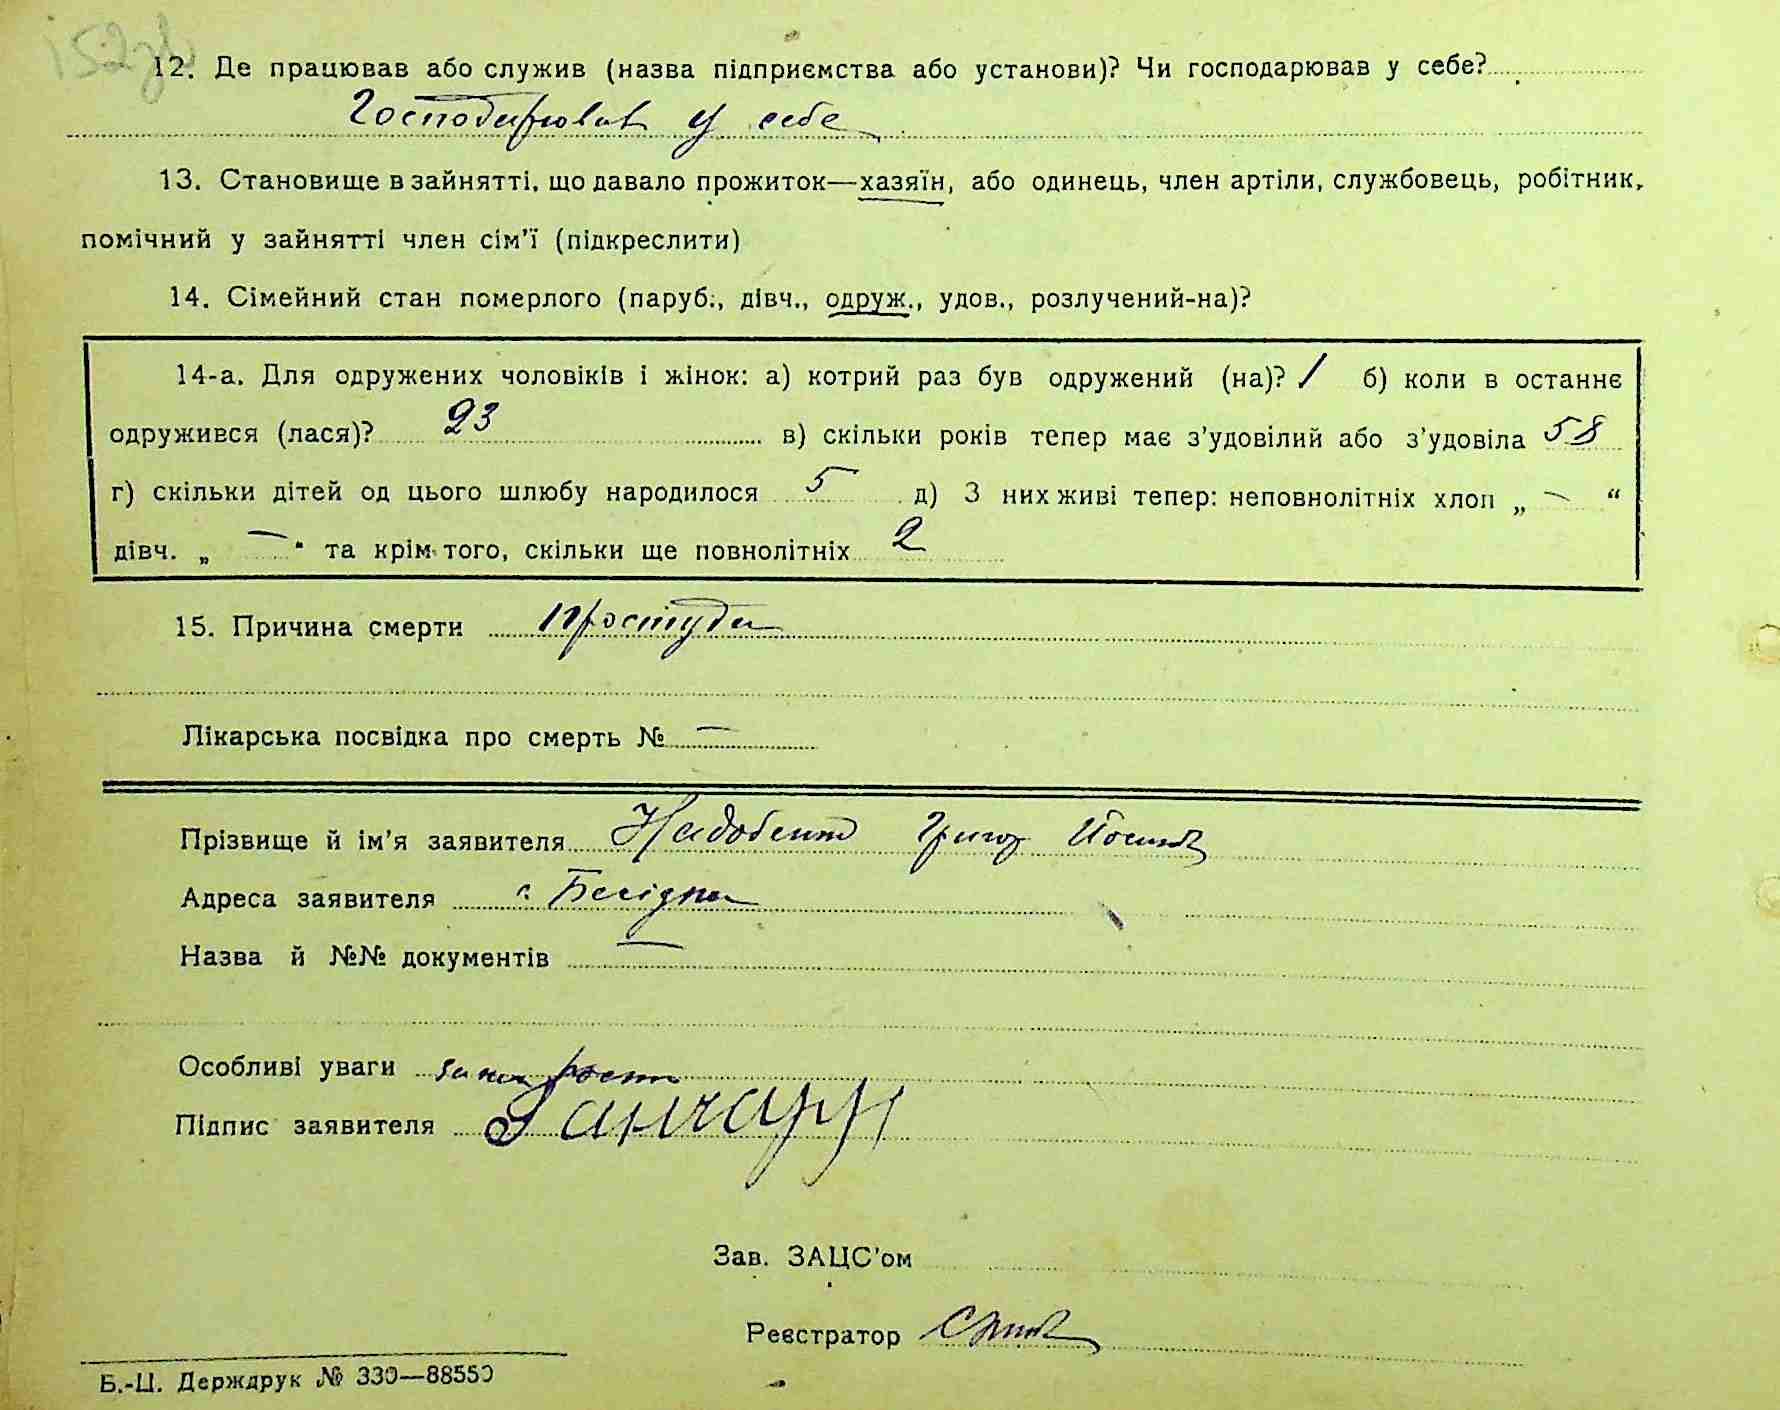 152зв
12. Де працював або служив (назва підприємства або установи)? Чи господарював у себе?
Господарював у себе
13. Становище в зайнятті, що давало прожиток—хазяїн, або одинець, член артіли, службовець, робітник,
помічний у зайнятті член сім'ї (підкреслити)
14. Сімейний стан померлого (паруб., дівч., одруж., удов., розлучений-на)?
14-а. Для одружених чоловіків і жінок: а) котрий раз був одружений (на)? / б) коли в останнє
одружився (лася)? 23 в) скільки років тепер має з'удовілий або з'удовіла 58
г) скільки дітей од цього шлюбу народилося 5 д) З них живі тепер: неповнолітніх хлоп „ — “
дівч. „ — “ та крім того, скільки ще повнолітніх 2
15. Причина смерти Простуда
Лікарська посвідка про смерть № —
Прізвище й ім'я заявителя Григор
Адреса заявителя с.
Назва й №№ документів —
Особливі уваги
Підпис заявителя Ганчарук
Зав. ЗАЦС'ом
Реєстратор
Б.-Ц. Держдрук № 330—88550